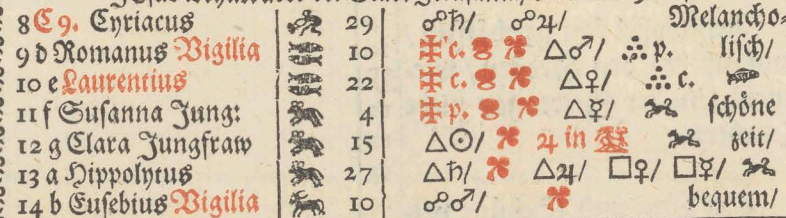 8 C 9. Cyriacus 29 ☍♄/ ☍♃/ Melancho⸗
9 d Romanus Vigilia 10 ✠ c. △♂/ p. liſch/
10 e Laurentius 22 ✠ c. △♀/ c.
11 f Suſanna Jung: 4 ✠ p. △☿/ ſchöne
12 g Clara Jungfraw 15 △☉/ ♃ in zeit/
13 a Hippolytus 27 △♄/ △♃/ □♀/ □☿/
14 b Euſebius Vigilia 10 ☍♂/ bequem/